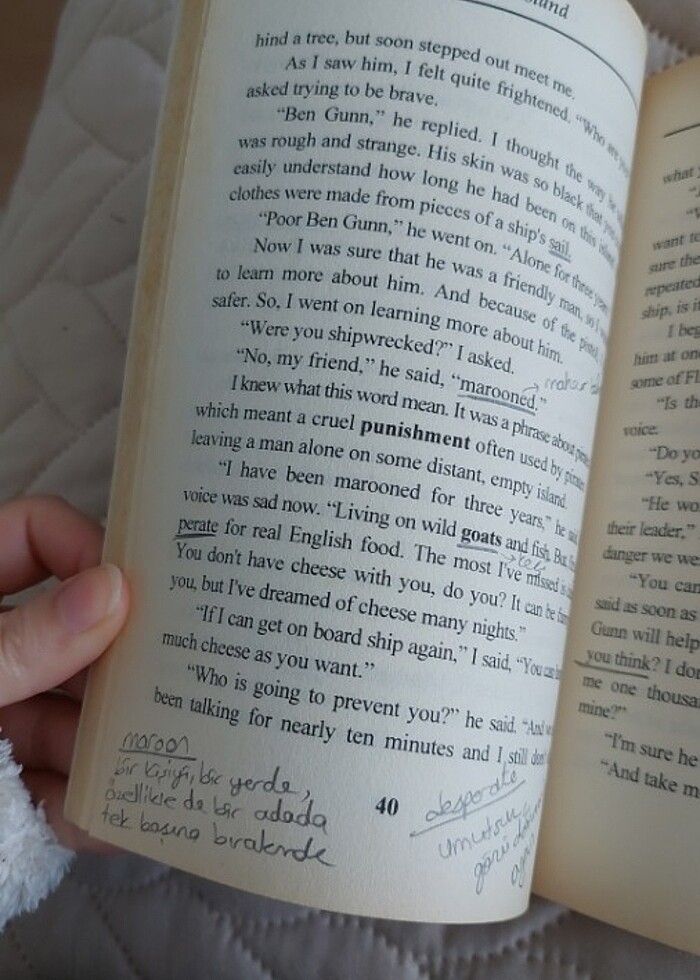 hind a tree, but soon stepped out meet me.
As I saw him, I felt quite frightened. "Who are
asked trying to be brave.
"Ben Gunn," he replied. I thought the way he
was rough and strange. His skin was so black that
easily understand how long he had been on this
clothes were made from pieces of a ship's sail.
"Poor Ben Gunn," he went on. "Alone for three
Now I was sure that he was a friendly man, so I
to learn more about him. And because of the pistol,
safer. So, I went on learning more about him.
"Were you shipwrecked?" I asked.
"No, my friend," he said, "marooned."
I knew what this word mean. It was a phrase about
which meant a cruel punishment often used by
leaving a man alone on some distant, empty island.
"I have been marooned for three years," he
voice was sad now. "Living on wild goats and fish. But,
perate for real English food. The most I've missed is
You don't have cheese with you, do you? It can be
you, but I've dreamed of cheese many nights."
"If I can get on board ship again," I said, "You can
much cheese as you want."
"Who is going to prevent you?" he said. "And
been talking for nearly ten minutes and I still don't
40
maroon
bir kişiyi, bir yerde,
özellikle de bir adada
tek başına bırakmak
desperate
umutsuz
what
want to
sure the
repeated
ship, is
I beg
him at
some of
"Is
voice.
"Do
"Yes,
"He
their leader,"
danger we
"You can
said as soon as
Gunn will help
you think? I
me one
mine?"
"I'm sure he
"And take